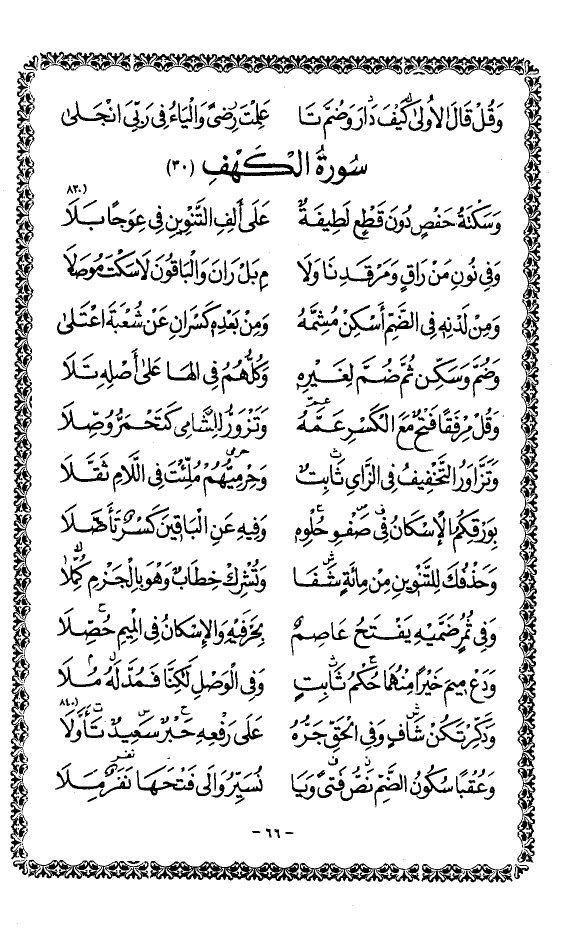 وَقُلْ قَالَ الأُولَىٰ كَيْفَ دَارَ وَضُمَّ تَا عَلِمْتَ رِضىً وَالْيَاءُ فِي رَبِّيَ انْجَلَىٰ
سُورَةُ الْكَهْفِ (٣٠)
٨٣٠)
وَسَكْتَةُ حَفْصٍ دُونَ قَطْعٍ لَطِيفَةٌ عَلَىٰ أَلِفِ التَّنْوِينِ فِي عِوَجاً بَلَا
وَفِي نُونِ مَنْ رَاقٍ وَمَرْقَدِنَا وَلَا مِ بَلْ رَانَ وَالْبَاقُونَ لَا سَكْتَ مُوصَلَا
وَمِنْ لَدْنِهِ فِي الضَّمِّ أَسْكِنْ مُشِمَّهُ وَمِنْ بَعْدِهِ كَسْرَانِ عَنْ شُعْبَةَ اعْتَلَىٰ
وَضُمَّ وَسَكِّنْ ثُمَّ ضُمَّ لِغَيْرِهِ وَكُلُّهُمُ فِي الهَا عَلَىٰ أَصْلِهِ تَلَا
وَقُلْ مِرْفَقاً فَتْحٌ مَعَ الْكَسْرِ عَمَّهُ وَتَزْوَرُّ لِلشَّامِي كَتَحْمَرُّ وُصِّلَا
وَتَزَّاوَرُ التَّخْفِيفُ فِي الزَّايِ ثَابِتٌ وَحِرْمِيُّهُمْ مُلِّئْتَ فِي اللَّامِ ثَقَّلَا
بِوَرْقِكُمُ الإِسْكَانُ فِي صَفْوِ حُلْوِهِ وَفِيهِ عَنِ الْبَاقِينَ كَسْرٌ تَأَصَّلَا
وَحَذْفُكَ لِلتَّنْوِينِ مِنْ مِائَةٍ شَفَا وَتُشْرِكْ خِطَابٌ وَهْوَ بِالْجَزْمِ كُمِّلَا
وَفِي ثُمُرٍ ضَمَّيْهِ يَفْتَحُ عَاصِمٌ بِحَرْفَيْهِ وَالإِسْكَانُ فِي الْمِيمِ حُصِّلَا
وَدَعْ مِيمَ خَيْراً مِنْهُمَا حُكْمُ ثَابِتٍ وَفِي الْوَصْلِ لَكِنَّا فَمُدَّ لَهُ مُلَا
٨٤٠)
وَذَكِّرْ تَكُنْ شَافٍ وَفِي الْحَقِّ جَرُّهُ عَلَىٰ رَفْعِهِ حَبْرٌ سَعِيدٌ تَأَوَّلَا
وَعُقْباً سُكُونُ الضَّمِّ نَصُّ فَتىً وَيَا نُسَيِّرُ وَالَىٰ فَتْحَهَا نَفَرٌ مِلَا
- ٦٦ -